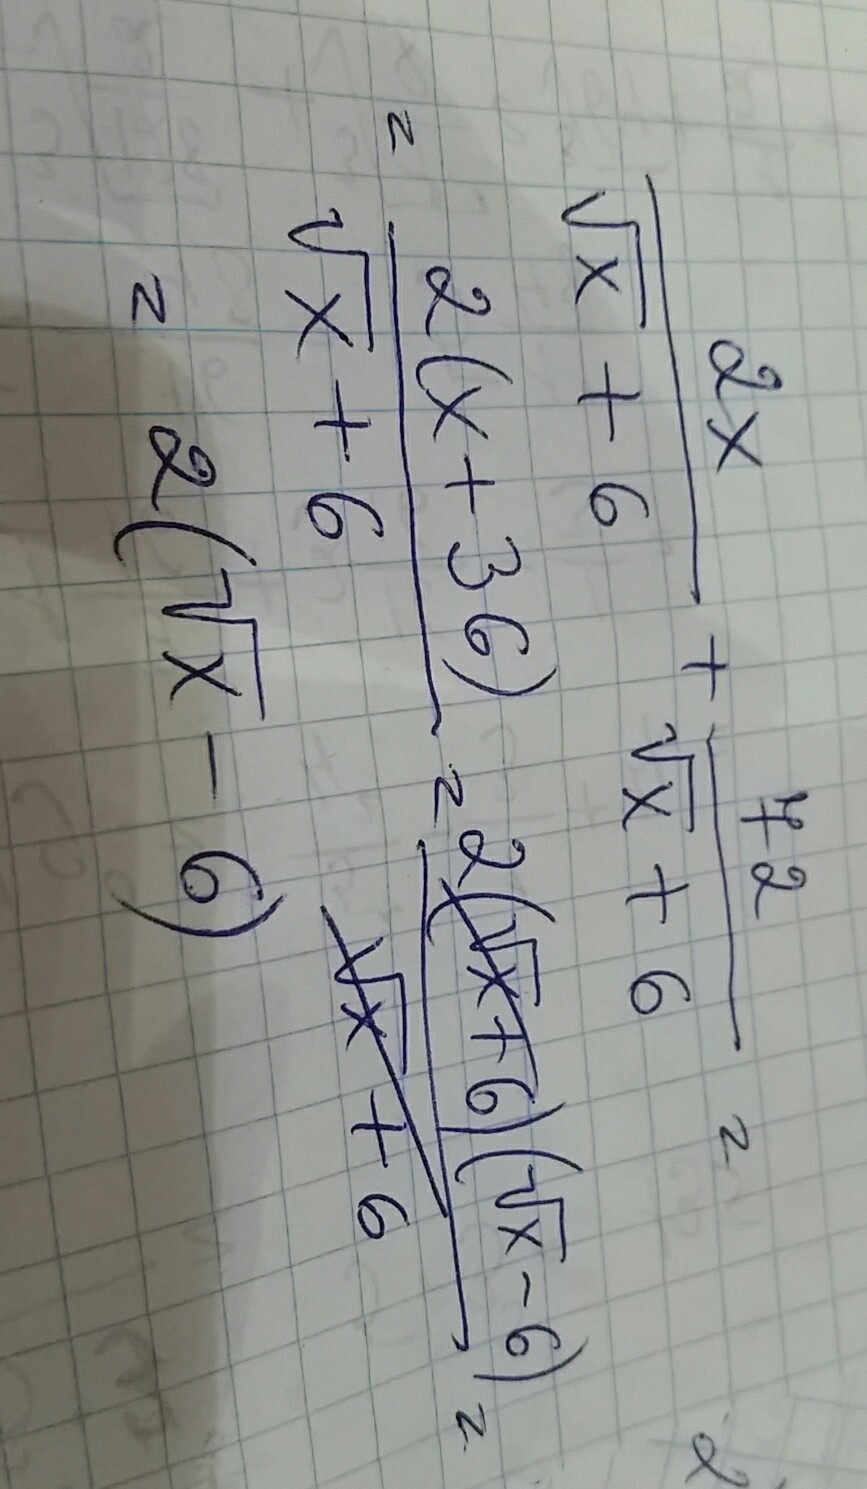 2x/(√x + 6) + 72/(√x + 6) =
= 2(x + 36)/(√x + 6) = 2(√x + 6)(√x - 6)/(√x + 6) =
= 2(√x - 6)